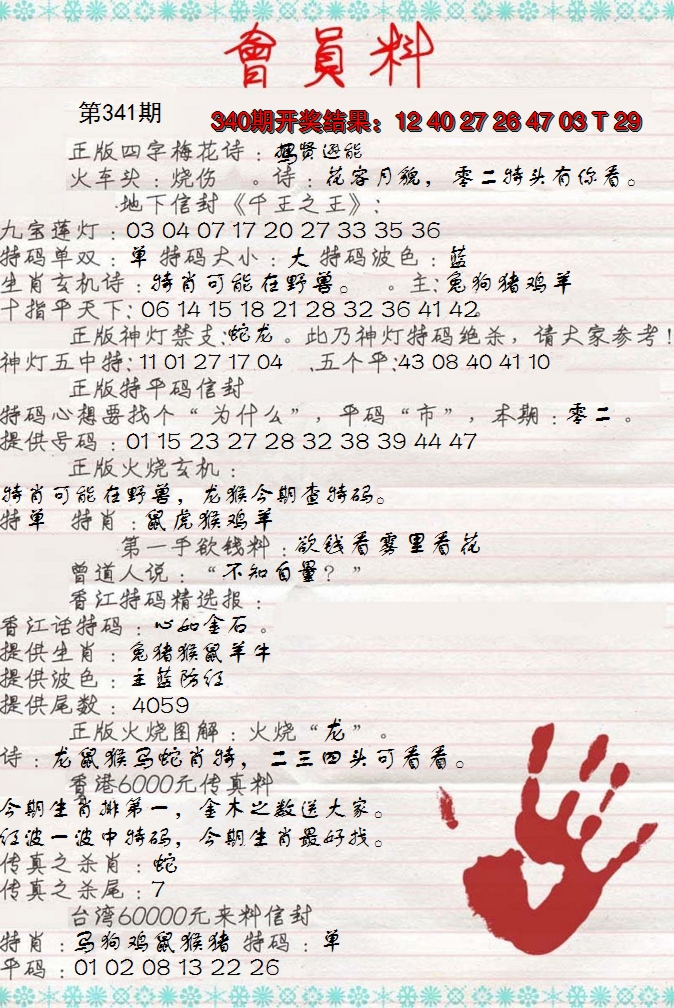 會員料
第341期
340期开奖结果：12 40 27 26 47 03 T 29
正版四字梅花诗：携贤逊能
火车头：烧伤 。诗：花容月貌，零二特头有你看。
地下信封《千王之王》：
九宝莲灯：03 04 07 17 20 27 33 35 36
特码单双：单 特码大小：大 特码波色：蓝
生肖玄机诗：特肖可能在野兽。 。主：兔狗猪鸡羊
十指平天下：06 14 15 18 21 28 32 36 41 42。
正版神灯禁支：蛇龙。此乃神灯特码绝杀，请大家参考！
神灯五中特：11 01 27 17 04 .五个平：43 08 40 41 10
正版特平码信封
特码心想要找个“为什么”，平码“市”，本期：零二。
提供号码：01 15 23 27 28 32 38 39 44 47
正版火烧玄机：
特肖可能在野兽，龙猴今期查特码。
特单 特肖：鼠虎猴鸡羊
第一手欲钱料：欲钱看雾里看花
曾道人说：“不知自量？”
香江特码精选报：
香江话特码：心如金石。
提供生肖：兔猪猴鼠羊牛
提供波色：主蓝防红
提供尾数：4059
正版火烧图解：火烧“龙”。
诗：龙鼠猴马蛇肖特，二三四头可看看。
香港6000元传真料
今期生肖排第一，金木之数送大家。
红波一波中特码，今期生肖最好找。
传真之杀肖：蛇
传真之杀尾：7
台湾60000元来料信封
特肖：马狗鸡鼠猴猪 特码：单
平码：01 02 08 13 22 26